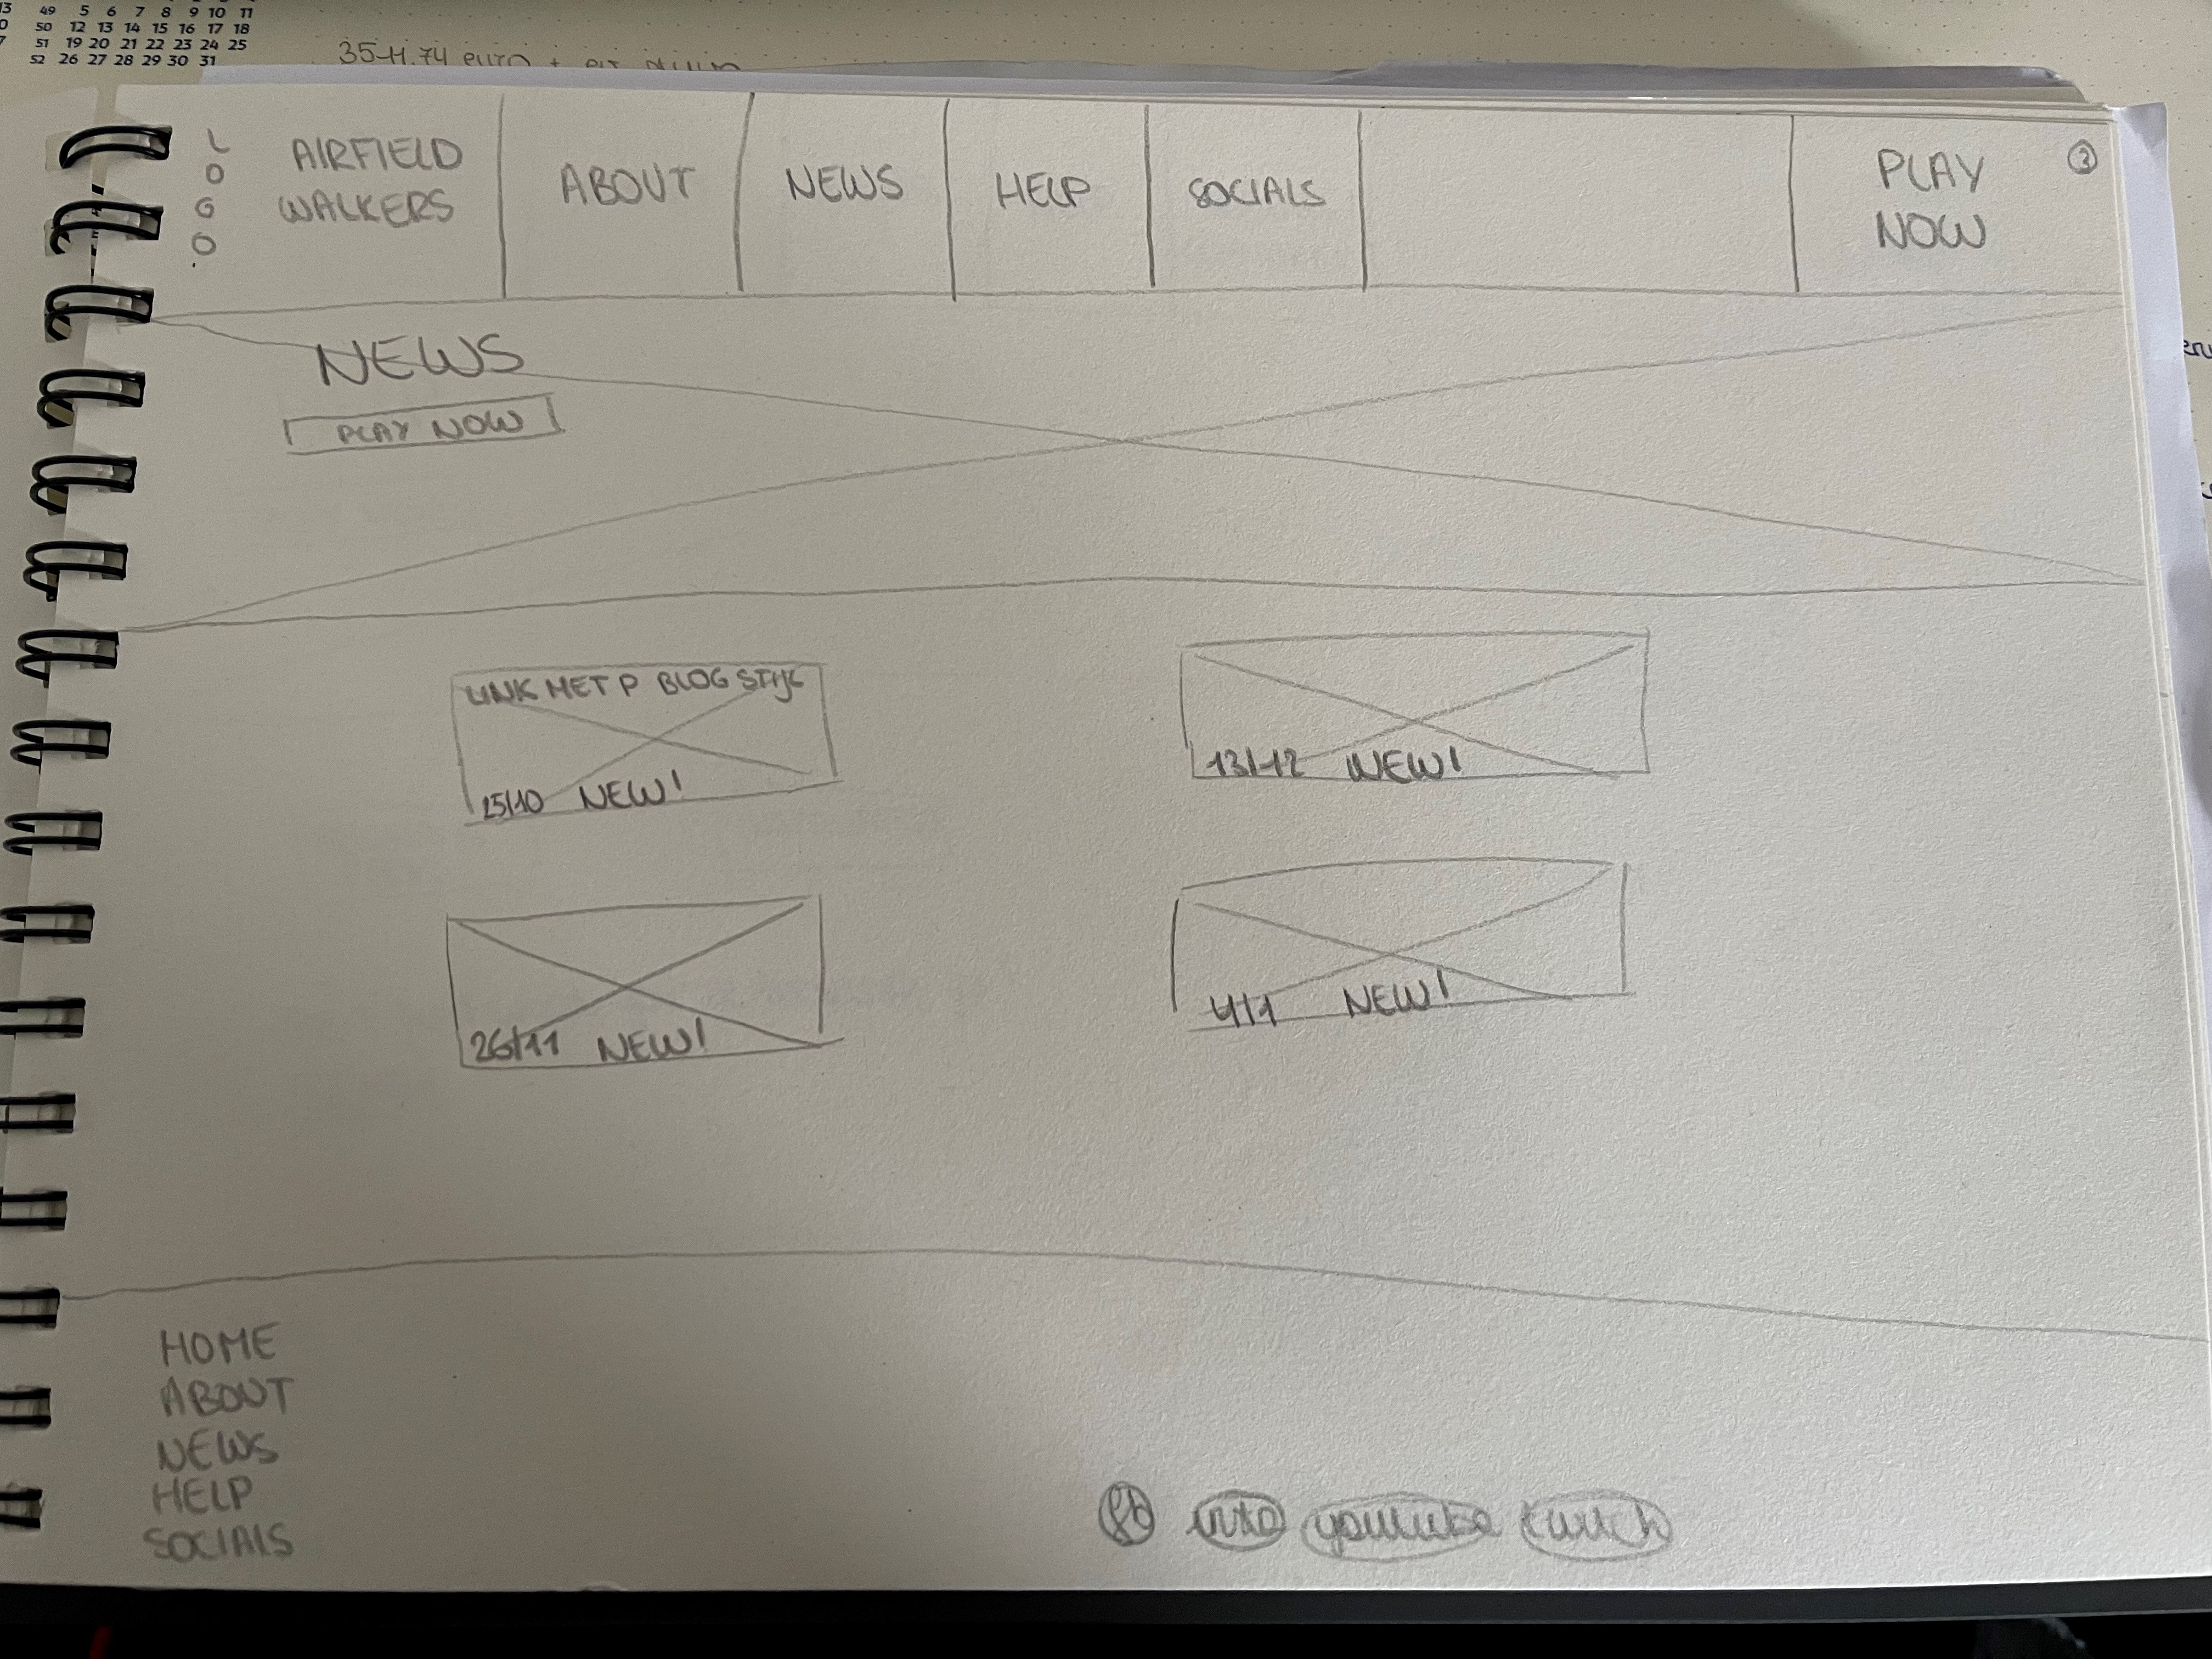 13 49 5 6 7 8 9 10 11
50 12 13 14 15 16 17 18
51 19 20 21 22 23 24 25
52 26 27 28 29 30 31
35-11.74 euro +
LOGO
AIRFIELD
WALKERS
ABOUT
NEWS
HELP
SOCIALS
PLAY
NOW
NEWS
PLAY NOW
LINK MET P BLOG STIJL
25/10 NEW!
13/12 NEW!
26/11 NEW!
4/1 NEW!
HOME
ABOUT
NEWS
HELP
SOCIALS
fb insta youtube twitch